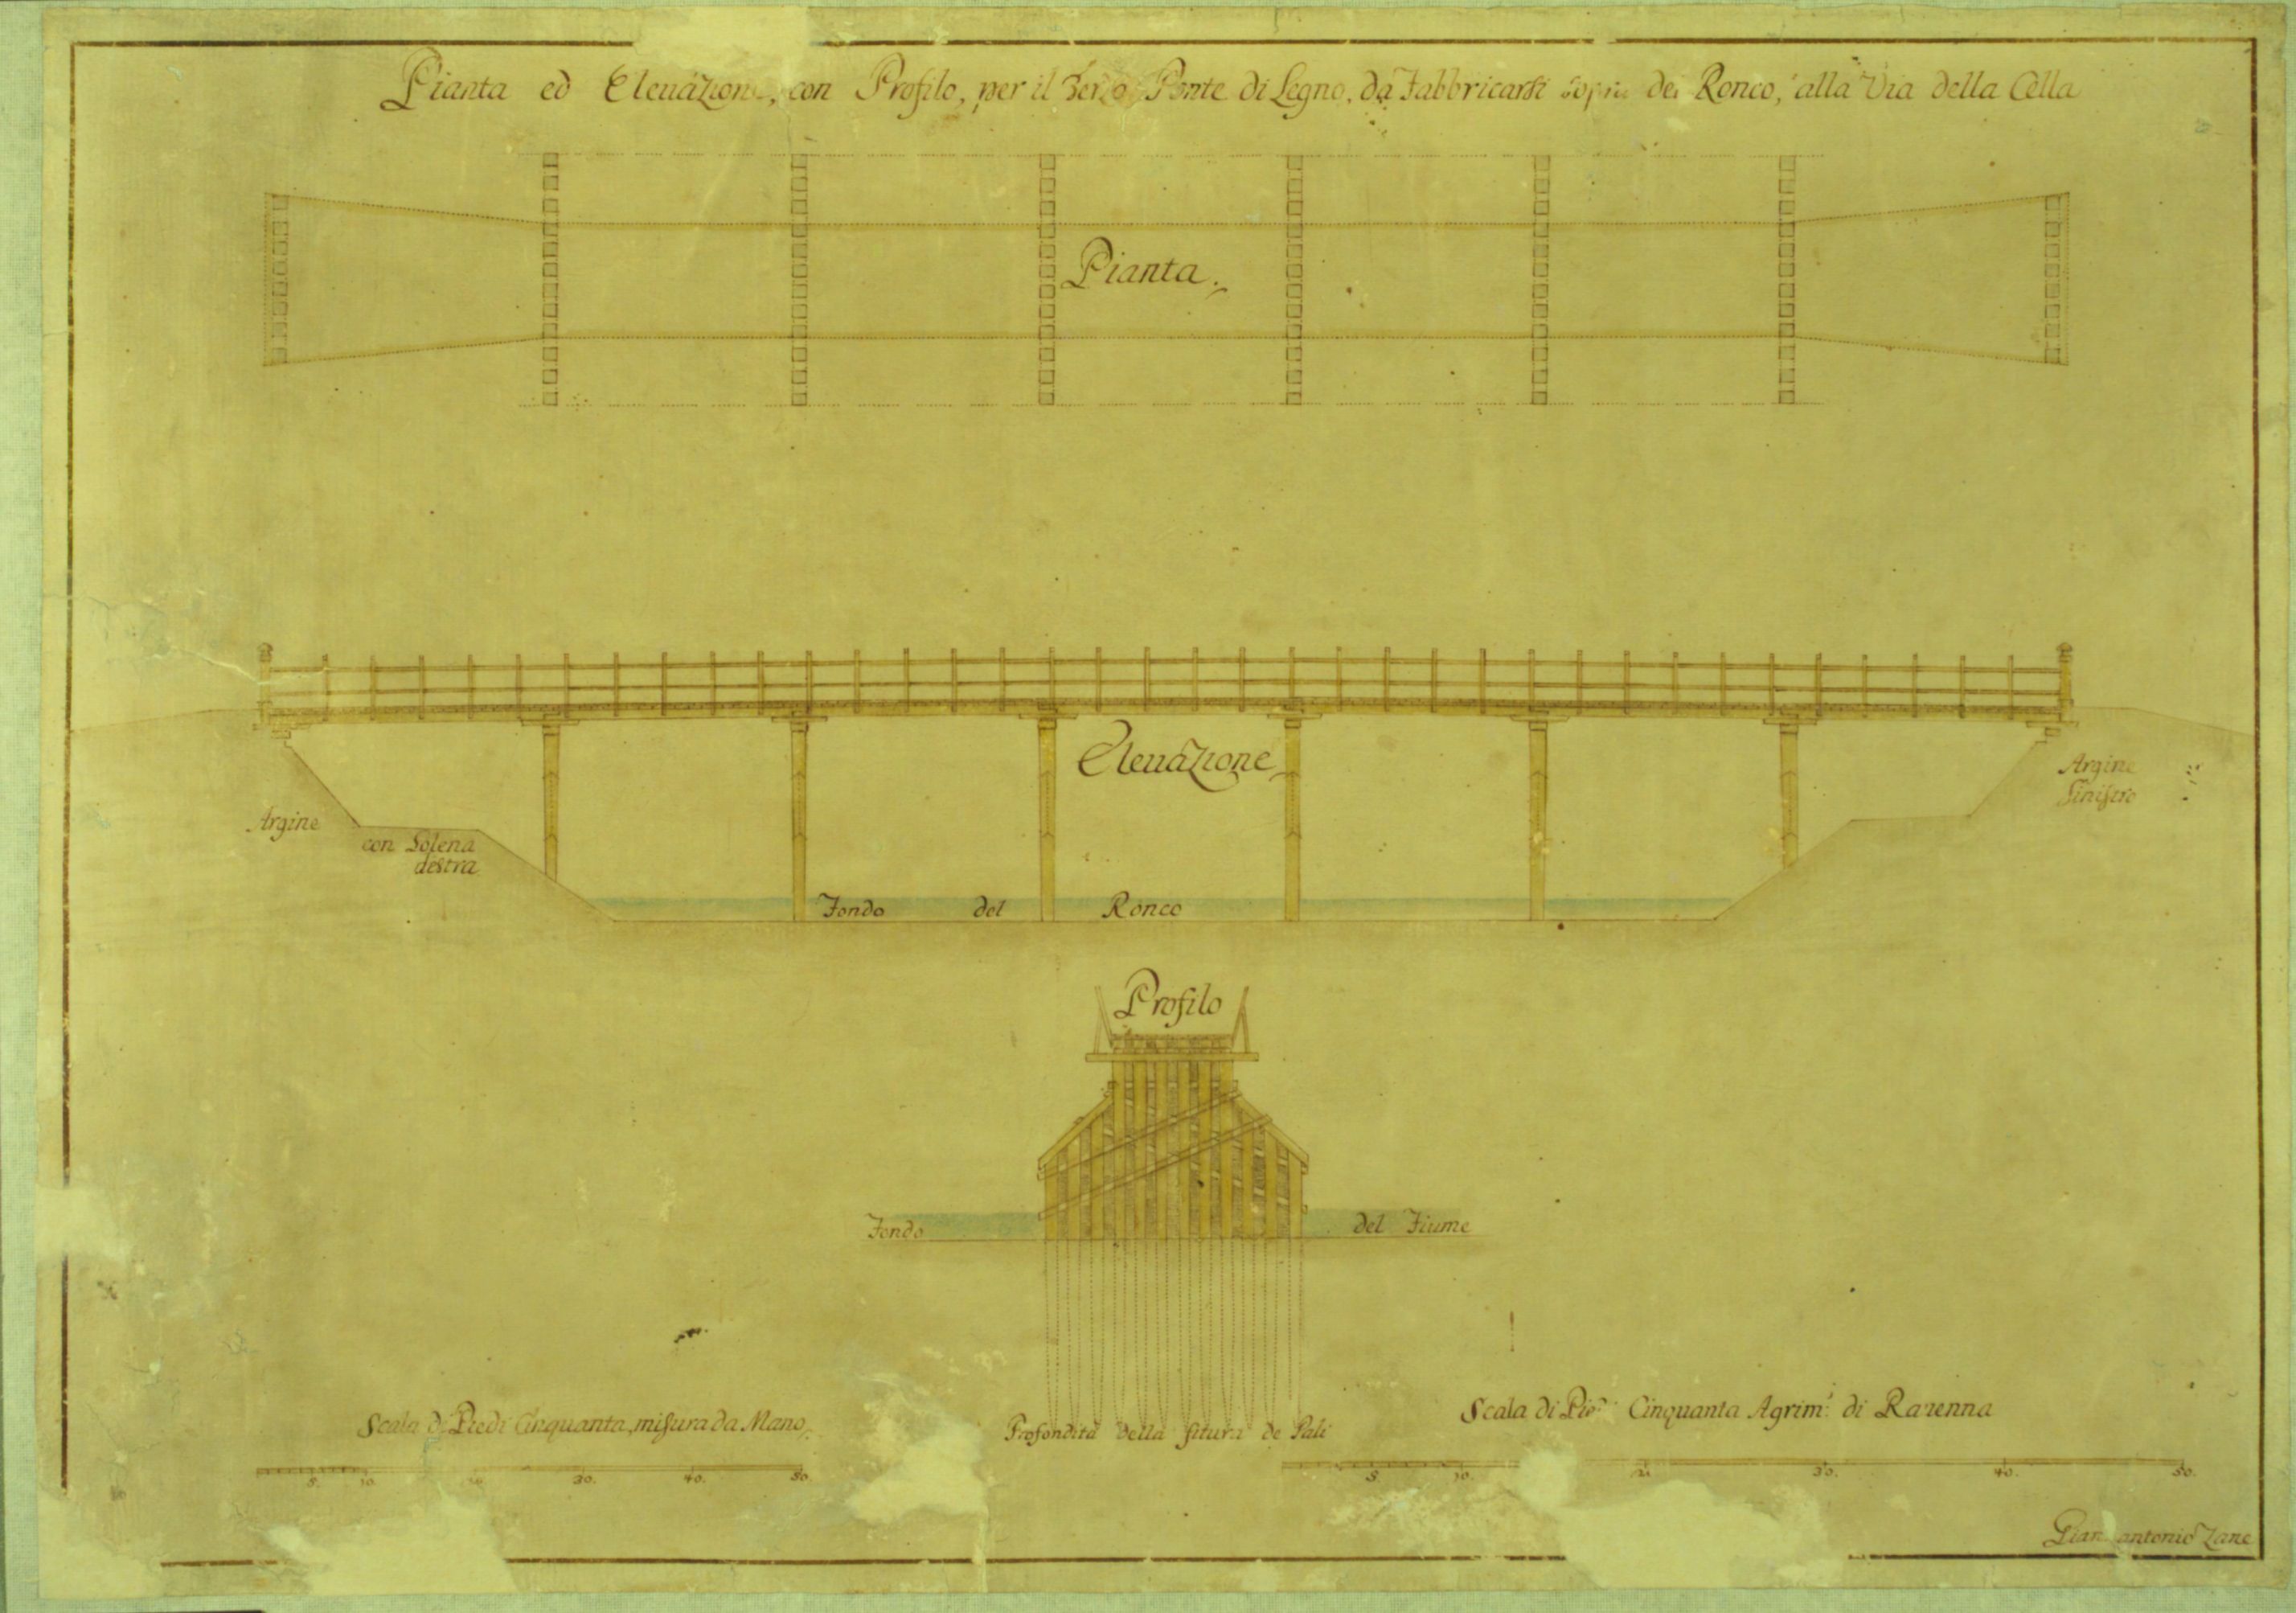 Pianta ed Eleuazione, con Profilo, per il Terzo Ponte di Legno, da Fabbricarsi sopra del Ronco, alla Via della Cella
Pianta.
Eleuazione
Argine
con Golena
destra
Argine
Sinistro
Fondo del Ronco
Profilo
Fondo del Fiume
Scala di Piedi Cinquanta, misura da Mano
5. 10. 20. 30. 40. 50.
Profondità della fitura de Pali
Scala di Pie.di Cinquanta Agrim.i di Rauenna
5. 10. 20. 30. 40. 50.
Gian antonio Zane